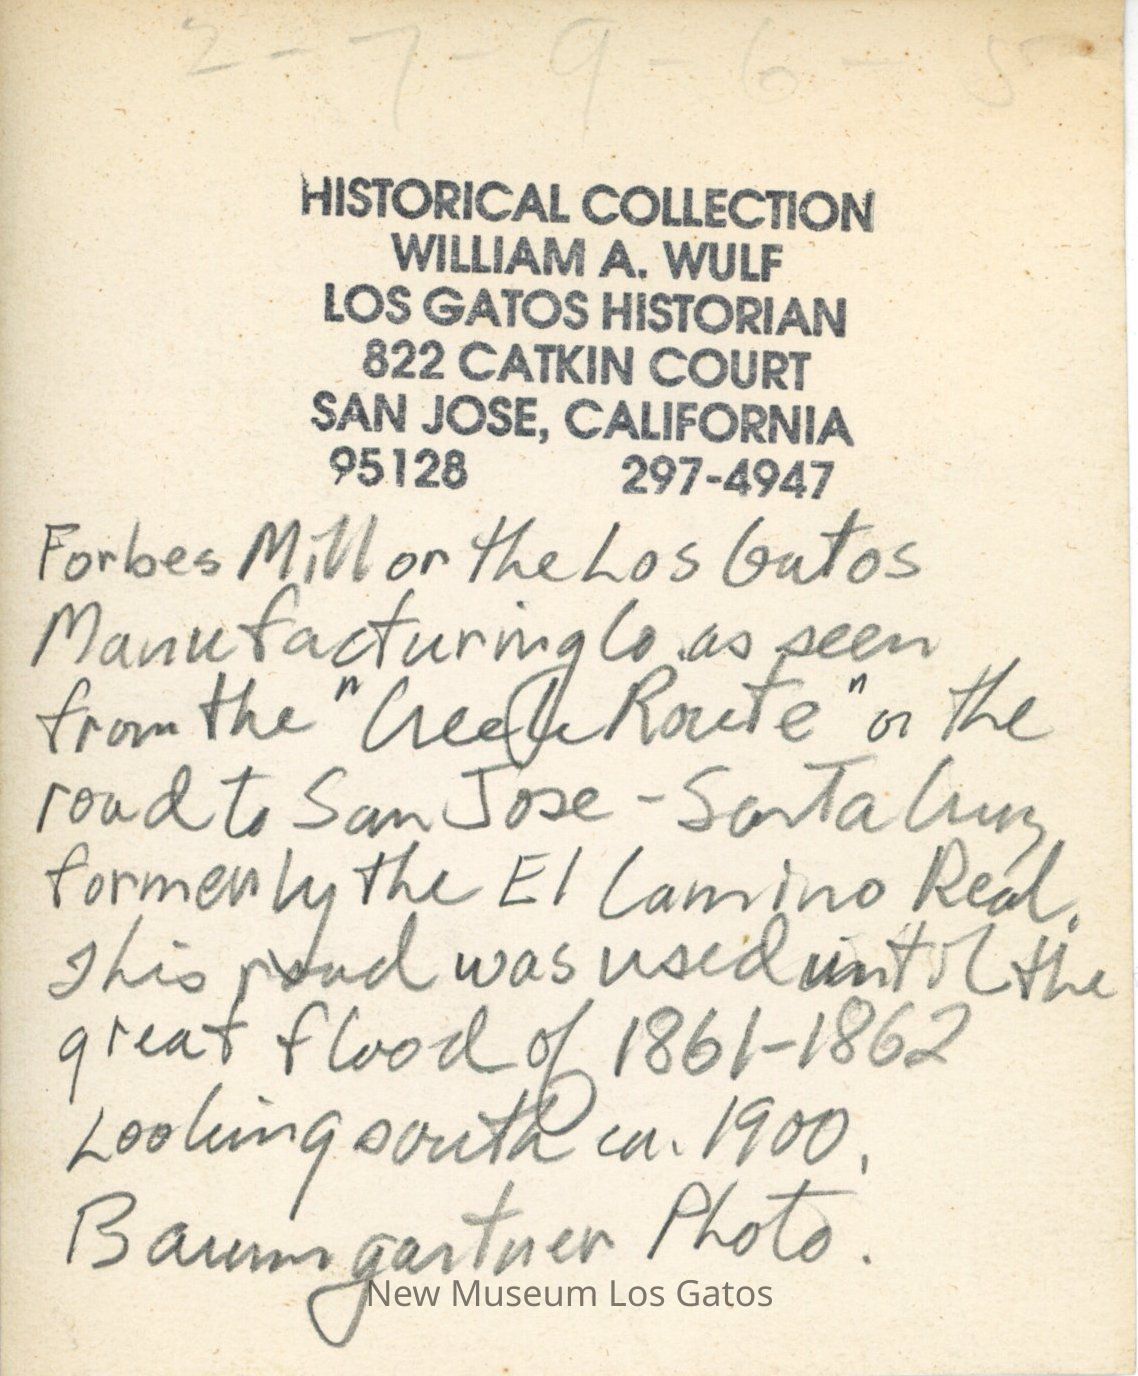 2-7-9-6-5
HISTORICAL COLLECTION
WILLIAM A. WULF
LOS GATOS HISTORIAN
822 CATKIN COURT
SAN JOSE, CALIFORNIA
95128 297-4947
Forbes Mill or the Los Gatos
Manufacturing Co. as seen
from the "Creek Route" or the
road to San Jose - Santa Cruz
formerly the El Camino Real.
This road was used until the
great flood of 1861-1862
Looking south ca. 1900,
Baumgartner Photo.
New Museum Los Gatos